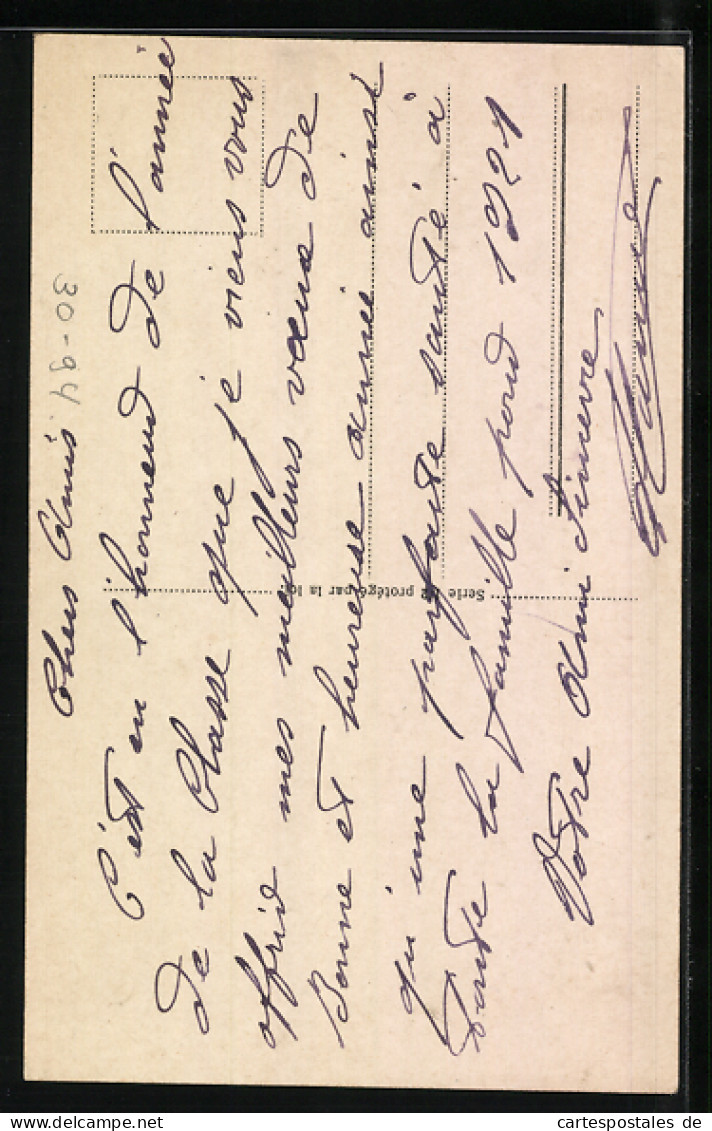 Chers Amis
30-94.
C'est en l'honneur de l'année
de la Classe que je viens vous
offrir mes meilleurs vœux de
Bonne et heureuse année ainsi
qu'une parfaite santé à
toute la famille pour 1921
Votre Ami Sincère
Serie protégé par la loi
cartespostales de